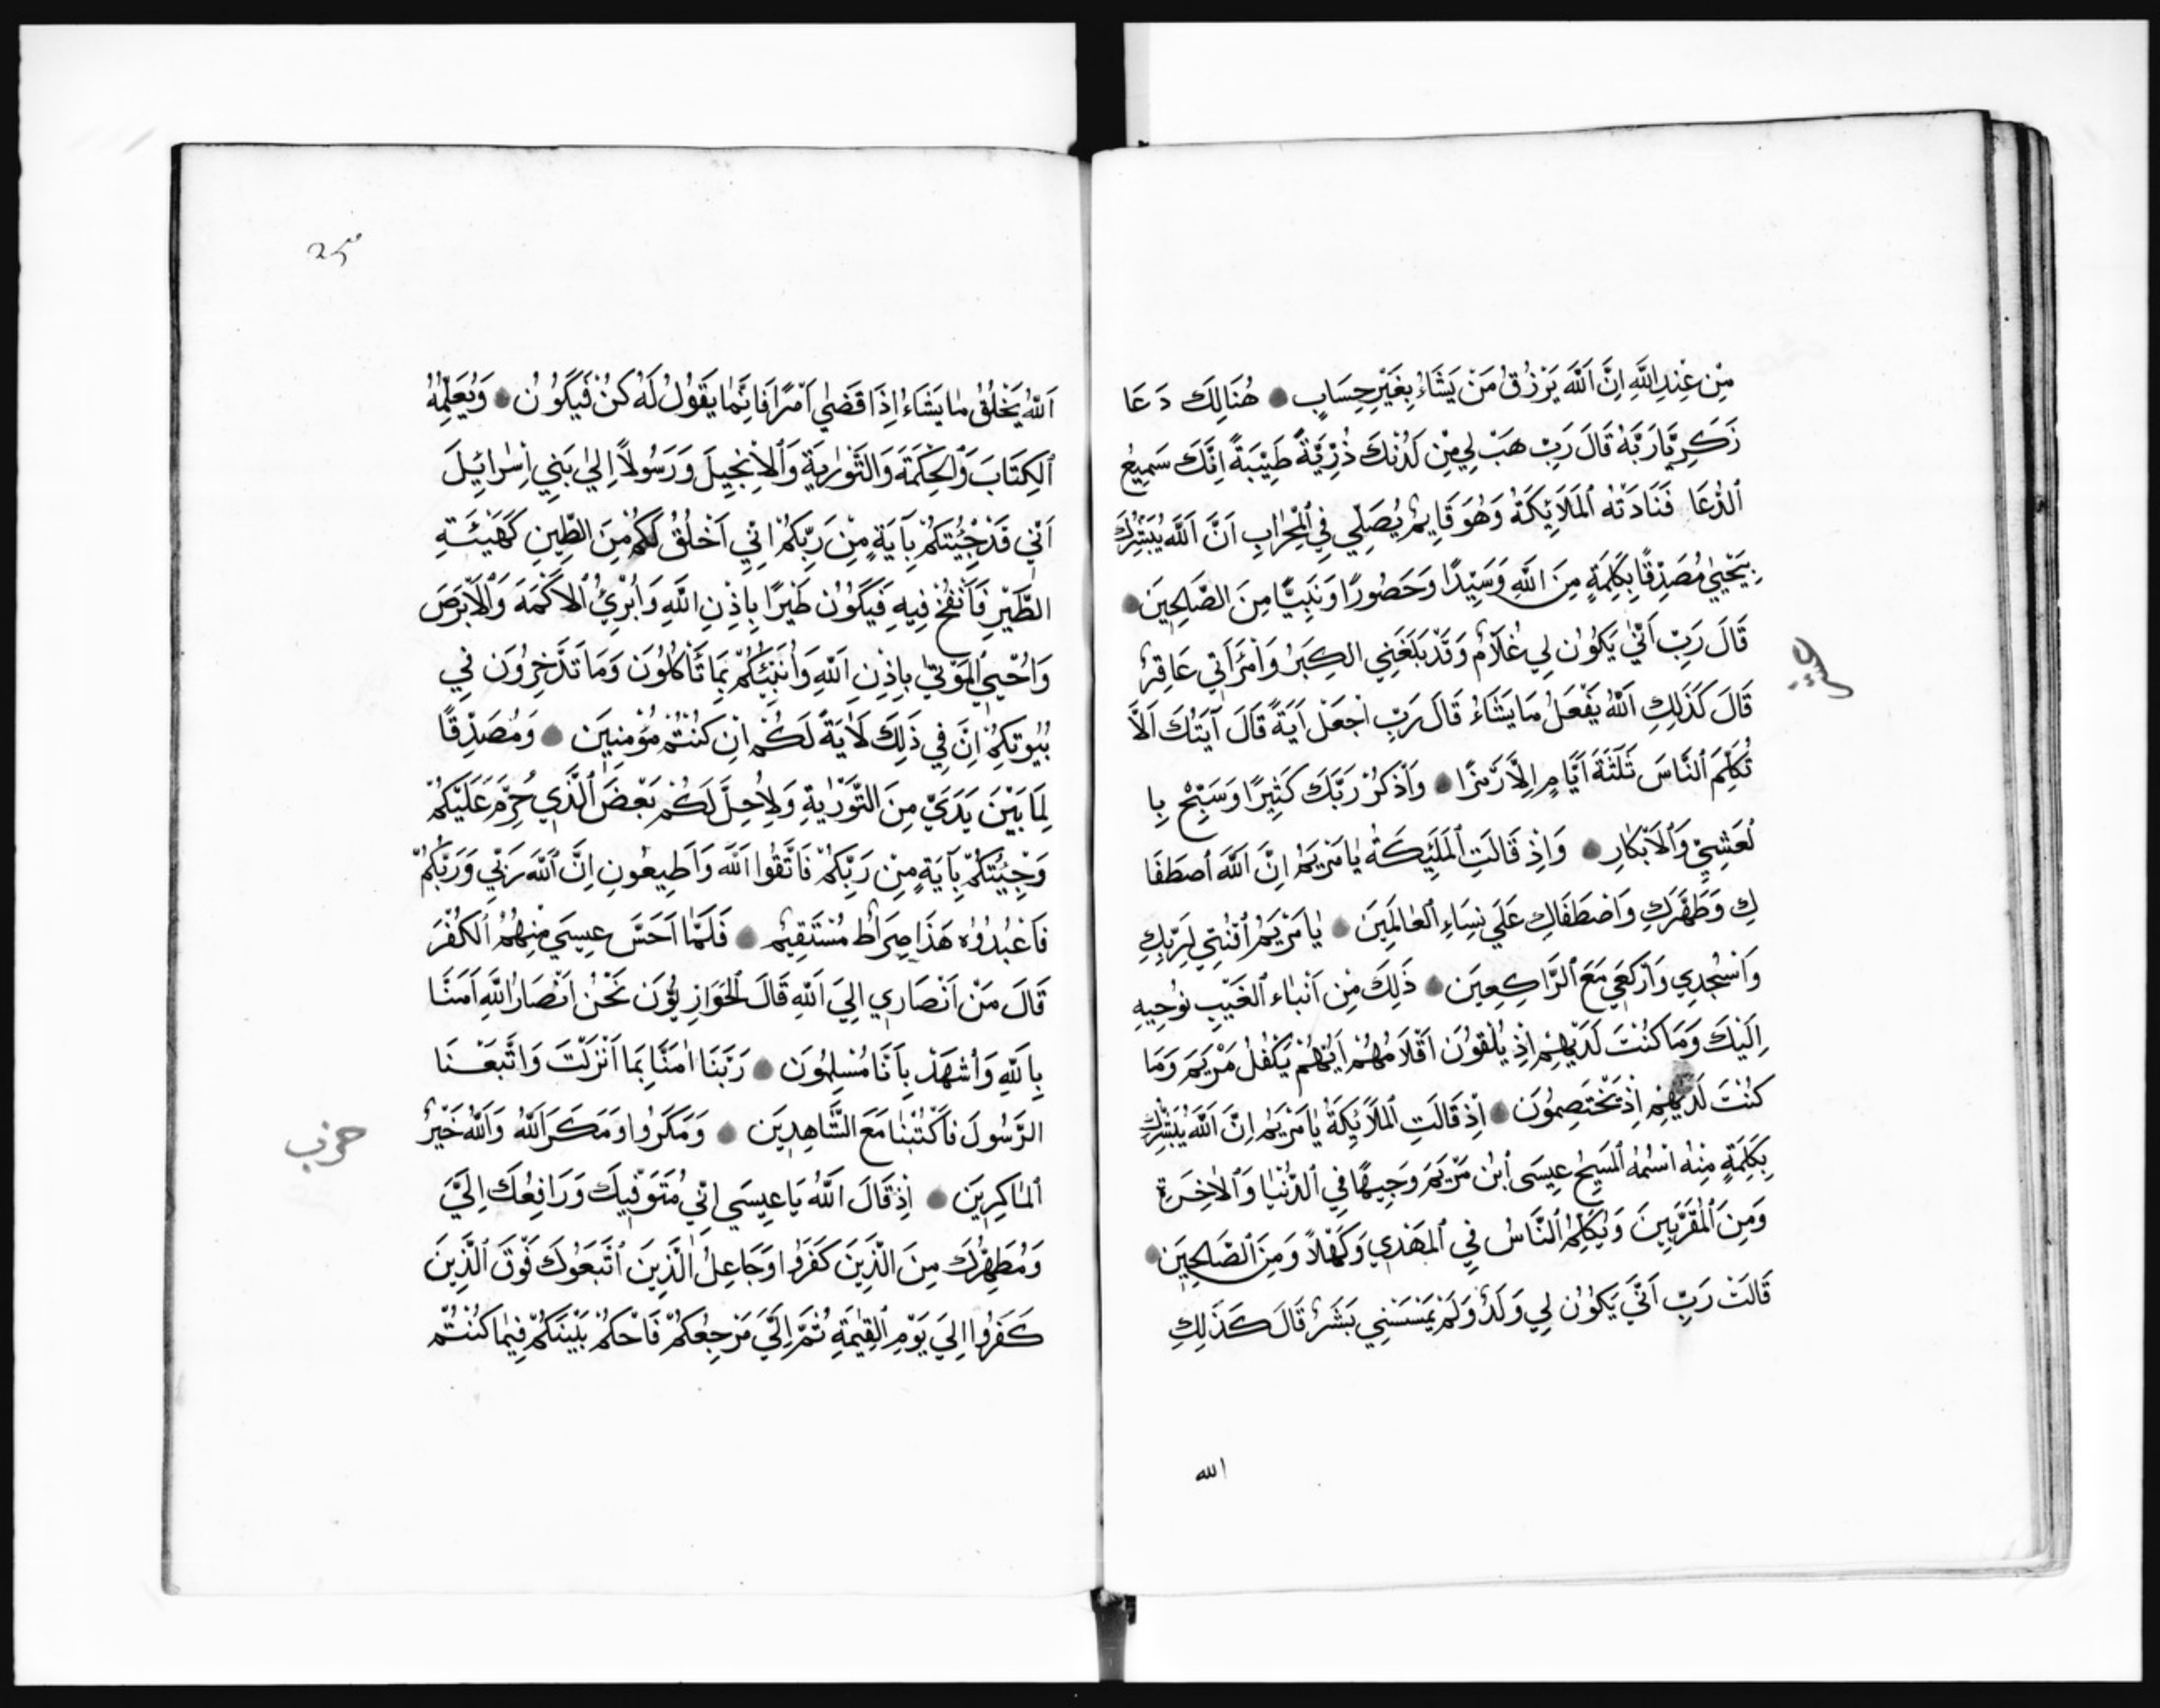 مِنْ عِنْدِ اللَّهِ اِنَّ اَللَّهَ يَرْزُقُ مَنْ يَشَاءُ بِغَيْرِ حِسَابٍ هُنَالِكَ دَعَا
زَكَرِيَّا رَبَّهُ قَالَ رَبِّ هَبْ لِي مِنْ لَدُنْكَ ذُرِّيَّةً طَيِّبَةً اِنَّكَ سَمِيعُ
اَلدُّعَا فَنَادَتْهُ اَلْمَلَائِكَةُ وَهُوَ قَايِمٌ يُصَلِّي فِي اَلْمِحْرَابِ اَنَّ اَللَّهَ يُبَشِّرُكَ
بِيَحْيَىٰ مُصَدِّقًا بِكَلِمَةٍ مِنَ اللَّهِ وَسَيِّدًا وَحَصُورًا وَنَبِيًّا مِنَ الصَّالِحِينَ
قَالَ رَبِّ اَنَّىٰ يَكُونُ لِي غُلَامٌ وَقَدْ بَلَغَنِي الْكِبَرُ وَامْرَاَتِي عَاقِرٌ
قَالَ كَذَلِكِ اَللَّهُ يَفْعَلُ مَا يَشَاءُ قَالَ رَبِّ اجْعَلْ اَيَةً قَالَ آيَتُكَ اَلَّا
تُكَلِّمَ اَلنَّاسَ ثَلَثَةَ اَيَّامٍ اِلَّا رَمْزًا وَاَذْكُرْ رَبَّكَ كَثِيرًا وَسَبِّحْ بِا
لْعَشِيِّ وَاَلْاِبْكَارِ وَاِذْ قَالَتِ اَلْمَلَئِكَةُ يَامَرْيَمُ اِنَّ اَللَّهَ اَصْطَفَا
كِ وَطَهَّرَكِ وَاصْطَفَاكِ عَلَي نِسَاءِ اَلْعَالَمِينَ يَامَرْيَمُ اُقْنُتِي لِرَبِّكِ
وَاسْجُدِي وَارْكَعِي مَعَ اَلرَّاكِعِينَ ذَلِكَ مِنْ اَنْبَاء اَلْغَيْبِ نُوحِيهِ
اِلَيْكَ وَمَا كُنْتَ لَدَيْهِمْ اِذْ يُلْقُونَ اَقْلَامَهُمْ اَيُّهُمْ يَكْفُلُ مَرْيَمَ وَمَا
كُنْتَ لَدَيْهِمْ اِذْ يَخْتَصِمُونَ اِذْ قَالَتِ اَلْمَلَائِكَةُ يَامَرْيَمُ اِنَّ اَللَّهَ يُبَشِّرُكِ
بِكَلِمَةٍ مِنْهُ اسْمُهُ اَلْمَسِيحُ عِيسَى اَبْنُ مَرْيَمَ وَجِيهًا فِي اَلدُّنْيَا وَاَلْاَخِرَةِ
وَمِنَ اَلْمُقَرَّبِينَ وَيُكَلِّمُ اَلنَّاسَ فِي اَلْمَهْدِ وَكَهْلًا وَمِنَ اَلصَّالِحِينَ
قَالَتْ رَبِّ اَنَّىٰ يَكُونُ لِي وَلَدٌ وَلَمْ يَمْسَسْنِي بَشَرٌ قَالَ كَذَلِكِ
الله
اَللَّهُ يَخْلُقُ مَا يَشَاءُ اِذَا قَضَىٰ اَمْرًا فَاِنَّمَا يَقُولُ لَهُ كُنْ فَيَكُونُ وَيُعَلِّمُهُ
اَلْكِتَابَ وَاَلْحِكْمَةَ وَالتَّوْرَيةَ وَاَلْاِنْجِيلَ وَرَسُولًا اِلَىٰ بَنِي اِسْرَائِيلَ
اَنِّي قَدْ جِئْتُكُمْ بِآيَةٍ مِنْ رَبِّكُمْ اِنِّي اَخْلُقُ لَكُمْ مِنَ الطِّينِ كَهَيْئَةِ
الطَّيْرِ فَاَنْفُخُ فِيهِ فَيَكُونُ طَيْرًا بِاِذْنِ اللَّهِ وَاُبْرِئُ اَلْاَكْمَهَ وَاَلْاَبْرَصَ
وَاُحْيِي اَلْمَوْتَىٰ بِاِذْنِ اَللَّهِ وَاُنَبِّئُكُمْ بِمَا تَاْكُلُونَ وَمَا تَدَّخِرُونَ فِي
بُيُوتِكُمْ اِنَّ فِي ذَلِكَ لَاَيَةً لَكُمْ اِنْ كُنْتُمْ مُؤْمِنِينَ وَمُصَدِّقًا
لِمَا بَيْنَ يَدَيَّ مِنَ التَّوْرَيةِ وَلِاُحِلَّ لَكُمْ بَعْضَ اَلَّذِي حُرِّمَ عَلَيْكُمْ
وَجِئْتُكُمْ بِآيَةٍ مِنْ رَبِّكُمْ فَاتَّقُوا اَللَّهَ وَاَطِيعُونِ اِنَّ اَللَّهَ رَبِّي وَرَبُّكُمْ
فَاعْبُدُوهُ هَذَا صِرَاطٌ مُسْتَقِيمٌ فَلَمَّا اَحَسَّ عِيسَي مِنْهُمُ اَلْكُفْرَ
قَالَ مَنْ اَنْصَارِي اِلَيَ اَللَّهِ قَالَ اَلْحَوَارِيُّونَ نَحْنُ اَنْصَارُ اللَّهِ اَمَنَّا
بِاللَّهِ وَاَشْهَدْ بِاَنَّا مُسْلِمُونَ رَبَّنَا اٰمَنَّا بِمَا اَنْزَلْتَ وَاتَّبَعْنَا
الرَّسُولَ فَاَكْتُبْنَا مَعَ الشَّاهِدِينَ وَمَكَرُوا وَمَكَرَ اَللَّهُ وَاَللَّهُ خَيْرُ
حزب
اَلْمَاكِرِينَ اِذْ قَالَ اَللَّهُ يَاعِيسَي اِنِّي مُتَوَفِّيكَ وَرَافِعُكَ اِلَيَّ
وَمُطَهِّرُكَ مِنَ الَّذِينَ كَفَرُوا وَجَاعِلُ اَلَّذِينَ اَتَّبَعُوكَ فَوْقَ اَلَّذِينَ
كَفَرُوا اِلَيَ يَوْمِ اَلْقِيَمَةِ ثُمَّ اِلَيَّ مَرْجِعُكُمْ فَاَحْكُمُ بَيْنَكُمْ فِيمَا كُنْتُمْ